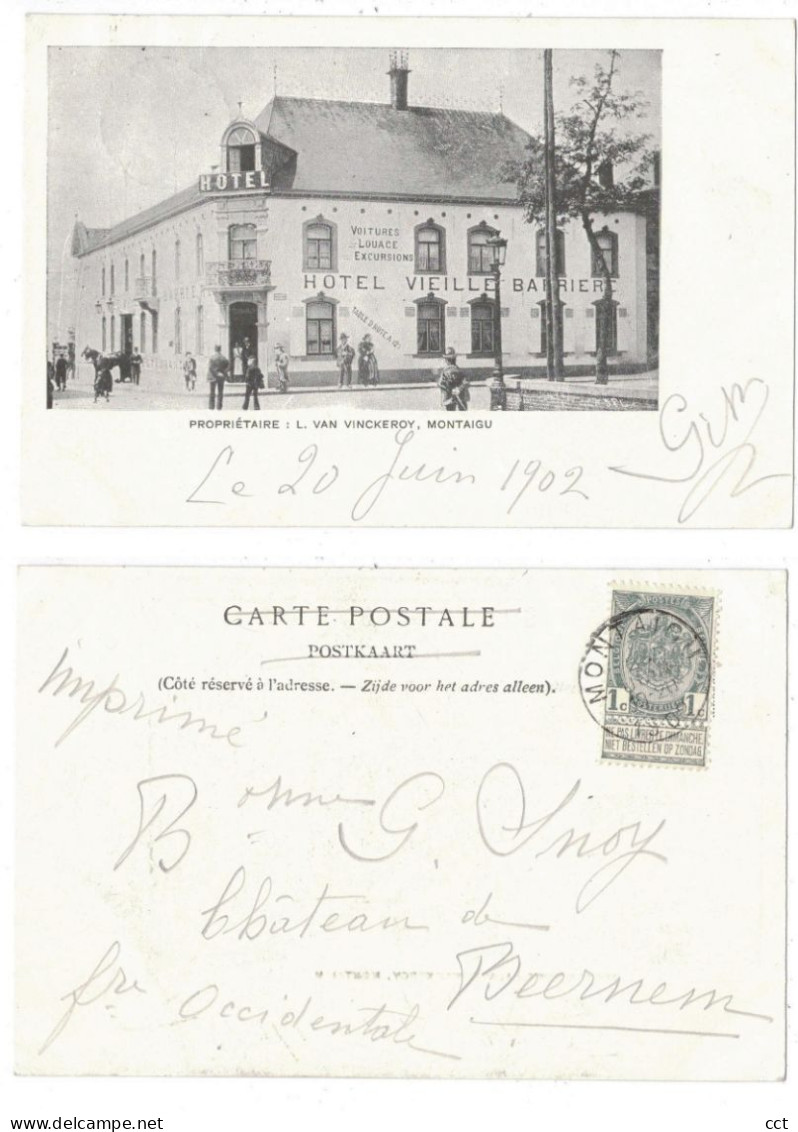 HOTEL
VOITURES
LOUAGE
EXCURSIONS
HOTEL VIEILLE BARRIERE
PROPRIÉTAIRE : L. VAN VINCKEROY, MONTAIGU
Le 20 Juin 1902
CARTE POSTALE
POSTKAART
(Côté réservé à l'adresse. — Zijde voor het adres alleen).
Imprimé
MONTAIGU
1c 1c
NE PAS LIVRER LE DIMANCHE
NIET BESTELLEN OP ZONDAG
Bonne G. Snoy
Château de
Beernem
fre Occidentale
cct